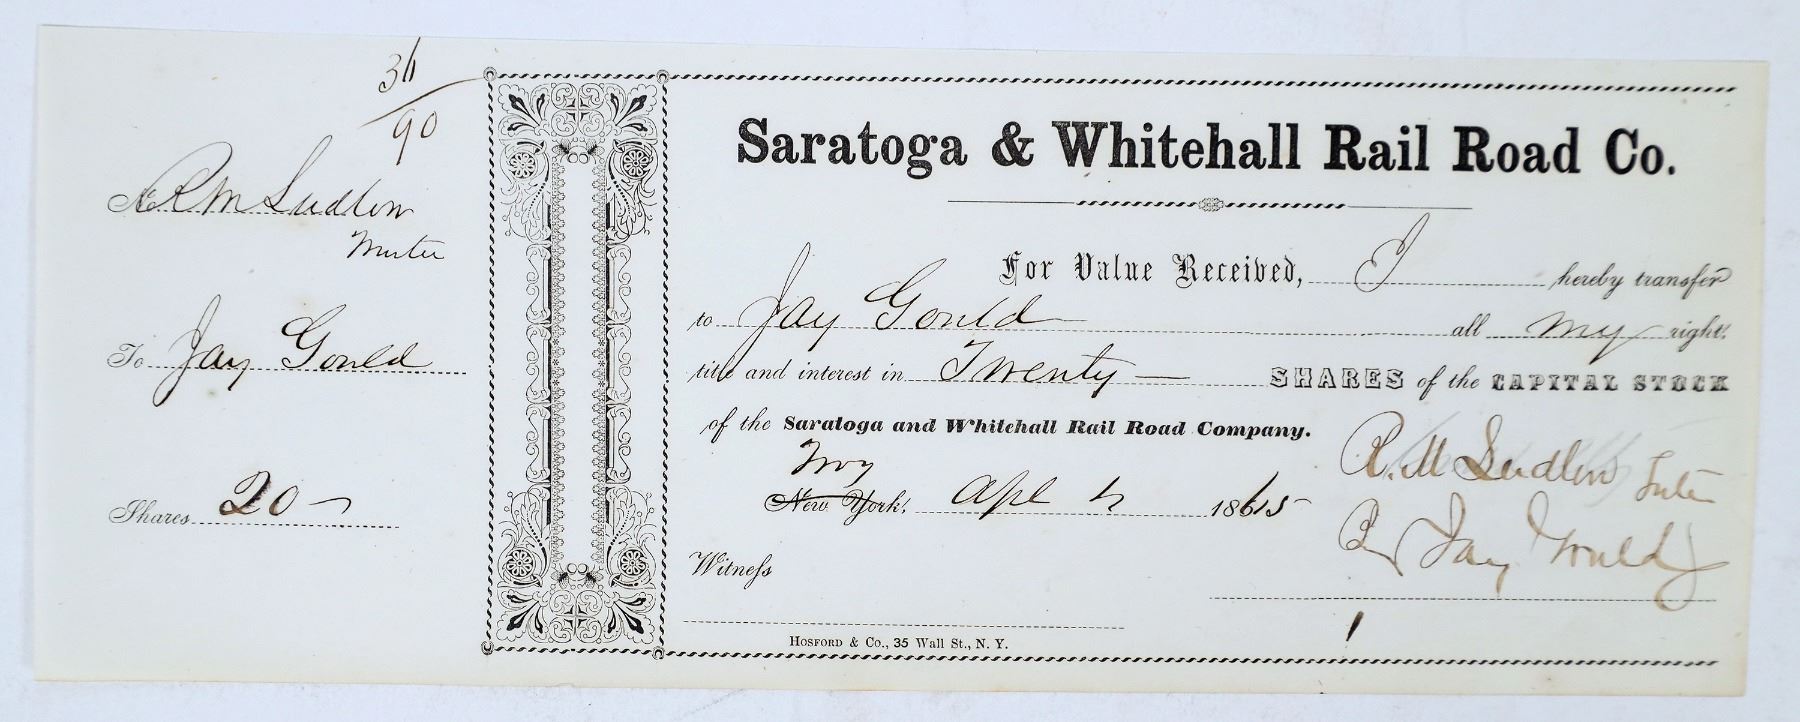 36
90
R M Ludlow
To Jay Gould
Shares 20 –
Saratoga & Whitehall Rail Road Co.
For Value Received, I hereby transfer
to Jay Gould all my right,
title and interest in Twenty — SHARES of the CAPITAL STOCK
of the Saratoga and Whitehall Rail Road Company.
Troy
New York, Apl 1865
R. M Ludlow
Jay Gould
Witness
HOSFORD & CO., 35 Wall St., N. Y.